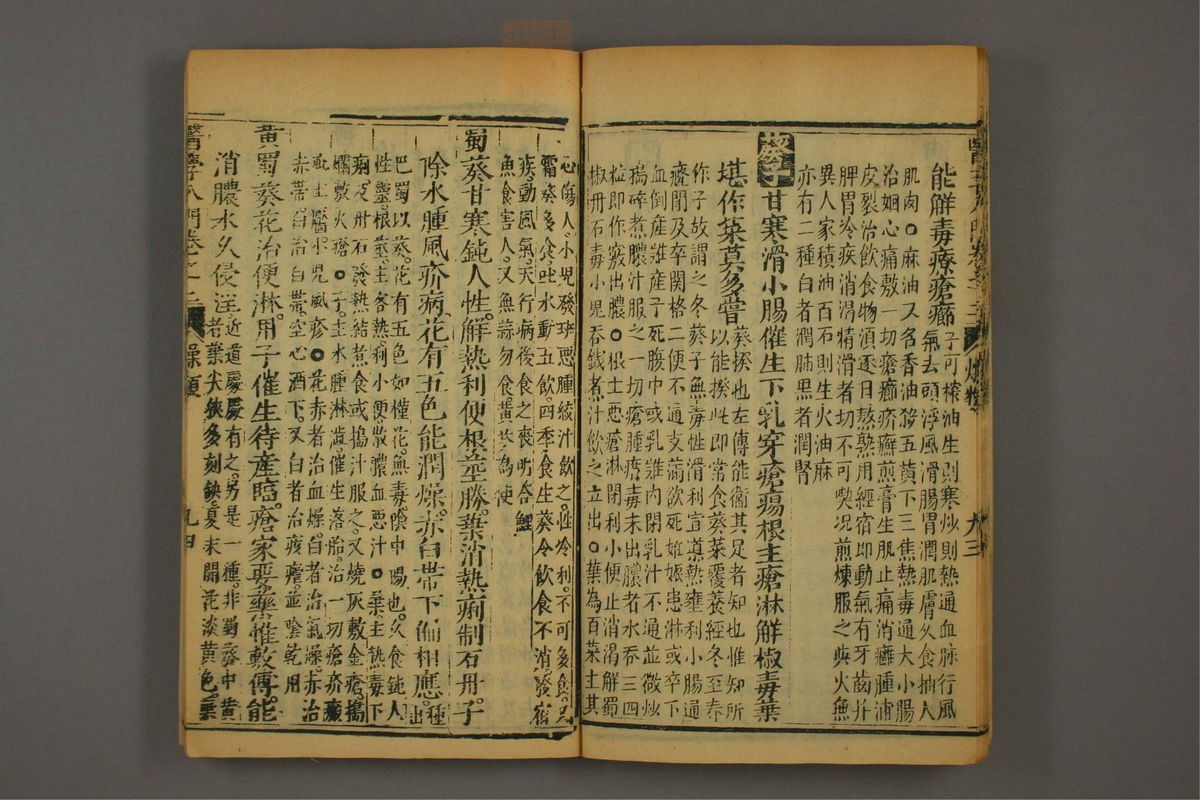 能解毒療瘡癤子可榨油生則寒炒則熱通血脉行風
氣去頭浮風滑腸胃潤肌膚久食抽人
肌肉○麻油又名香油發五黃下三焦熱毒通大小腸
治蛔心痛敷一切瘡癤疥癬煎膏生肌止痛消癰腫補
皮裂治飲食物須逐日熬熟用經宿即動氣有牙齒并
脾胃冷疾消渴精滑者切不可喫况煎煉服之與火無
異人家積油百石則生火油麻
亦有二種白者潤肺黑者潤腎
葵子甘寒滑小腸催生下乳穿瘡瘍根主瘡淋解椒毒葉
堪作菜莫多嘗葵揆也左傳能衞其足者知也惟知所
以能揆此即常食葵菜覆養經冬至春
作子故謂之冬葵子無毒性滑利宣導熱壅利小腸通
癃閉及卒関格二便不通支滿欲死姙娠患淋或卒下
血倒産難産子死腹中或乳難內閉乳汁不通並微炒
搗碎煮濃汁服之一切瘡腫瘡毒未出膿者水吞三四
粒即作竅出膿○根主惡瘡淋閉利小便止消渴解蜀
椒丹石毒小児吞錢煮汁飲之立出○葉為百菜主其
心傷人小児發班惡腫絞汁飲之性冷利不可多食
霜葵多食吐水動五飲四季食生葵令飲食不消發宿
疾動風氣天行病後食之喪明合鯉
魚食害人又無蒜勿食黃芩為使
蜀葵甘寒鈍人性解熱利便根莖勝葉治熱痢制石丹子
除水腫風疥病花有五色能潤燥赤白帶下偏相應種出
巴蜀以葵花有五色如槿花無毒陰中陽也久食鈍人
性靈根莖主客熱利小便散膿血惡汁○葉主熱毒下
痢及丹石發熱結煮食或搗汁服之又燒灰敷金瘡搗
爛敷火瘡○子主水腫淋澁催生落胎治一切瘡疥瘢
疵土靨小児風疹○花赤者治血燥白者治氣燥赤治
赤帶白治白帶空心酒下又白者治痎瘧並陰乾用
黃蜀葵花治便淋用子催生待産臨瘡家要藥惟敷傅能
消膿水久侵淫近道處處有之另是一種非蜀葵中黃
者葉尖狹多刻缺夏末開花淡黃色葉
醫學入門卷之二 燥類 九四